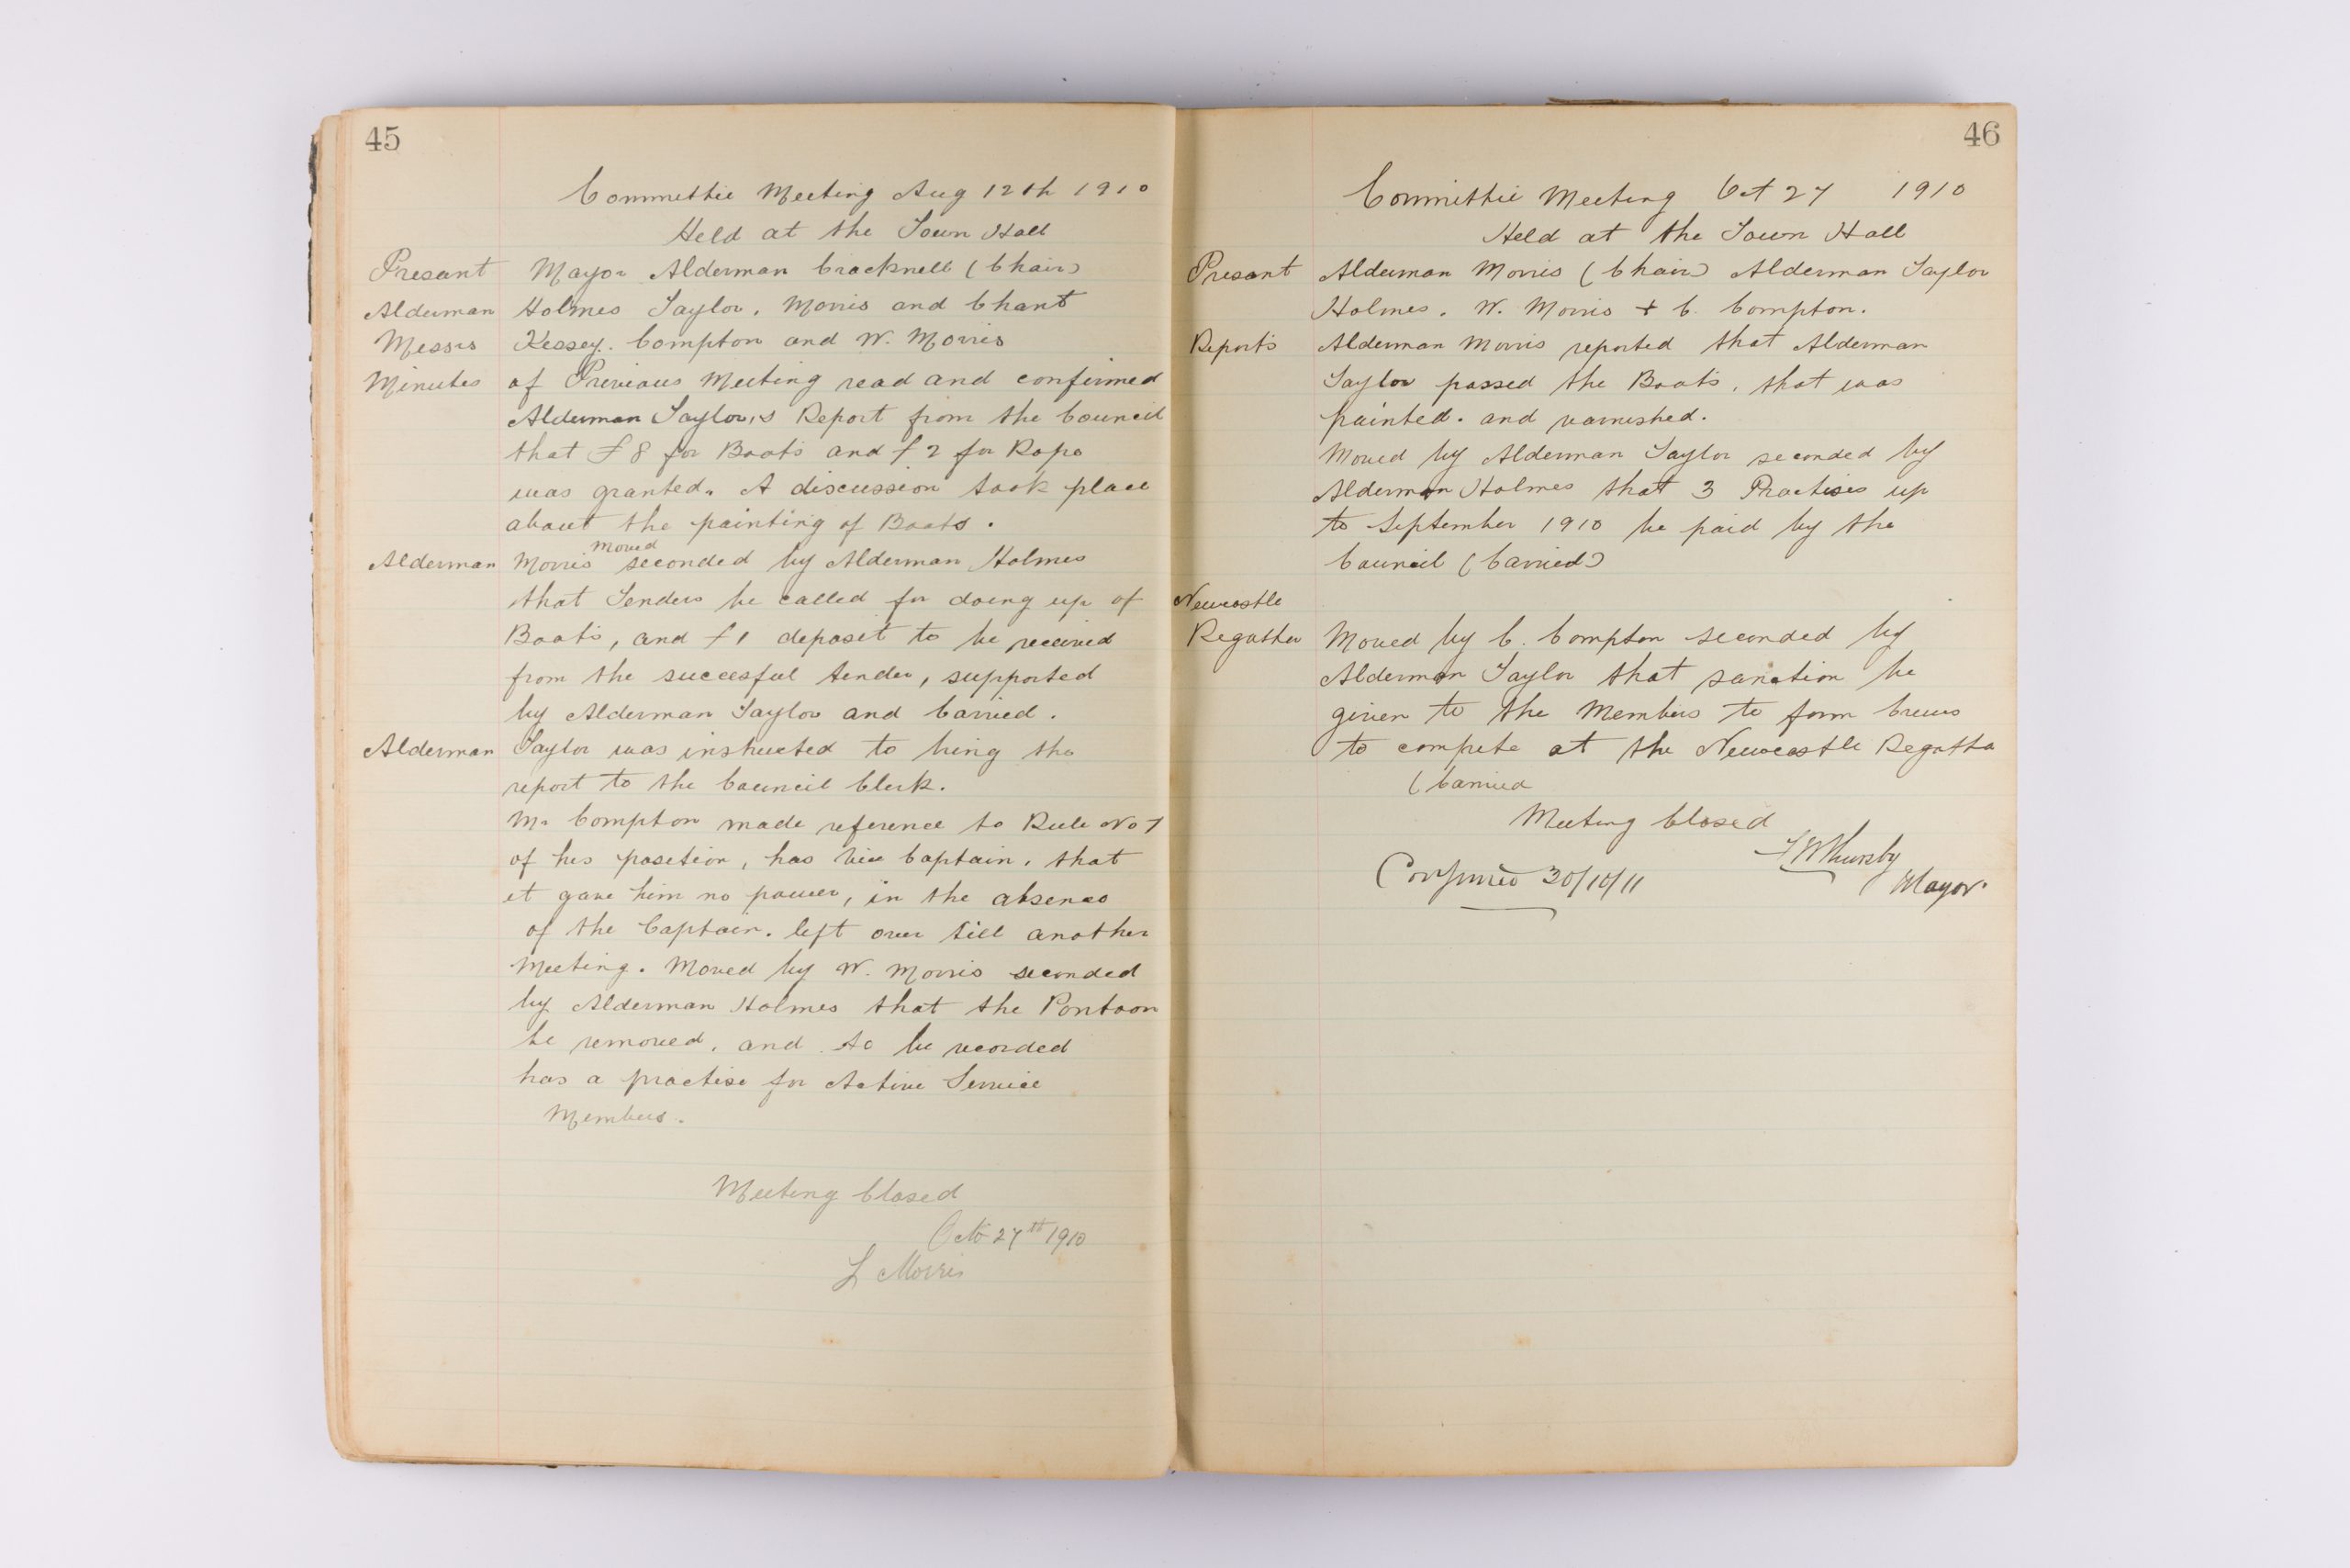 45
Committie Meeting Aug 12th 1910
Held at the Town Hall
Presant Mayor Alderman Cracknell (Chair)
Alderman Holmes Taylor, Morris and Chant
Messrs Kessey. Compton and W. Morris
Minutes of Previous Meeting read and confirmed
Alderman Taylor,s Report from the Council
that £8 for Boats and £2 for Rope
was granted. A discussion took place
about the painting of Boats.
moved
Alderman Morris seconded by Alderman Holmes
that Tenders be called for doing up of
Boats, and £1 deposit to be received
from the succesful tender, supported
by Alderman Taylor and Carried.
Alderman Taylor was instructed to bring the
report to the Council Clerk.
Mr Compton made reference to Rule No 7
of his position, has vice Captain, that
it gave him no power, in the absence
of the Captain. left over till another
Meeting. Moved by W. Morris seconded
by Alderman Holmes that the Pontoon
be removed, and to be recorded
has a practise for Active Service
Members.
Meeting Closed
Oct 27th 1910
L Morris
46
Committie Meeting Oct 27 1910
Held at the Town Hall
Presant Alderman Morris (Chair) Alderman Taylor
Holmes. W. Morris + C. Compton.
Reports Alderman Morris reported that Alderman
Taylor passed the Boats, that was
painted. and varnished.
Moved by Alderman Taylor seconded by
Alderman Holmes that 3 Practises up
to September 1910 be paid by the
Council (Carried)
Newcastle
Regatta Moved by C. Compton seconded by
Alderman Taylor that sanction be
given to the Members to form Crews
to compete at the Newcastle Regatta
(Carried
Meeting Closed
Confirmed 30/10/11
Mayor.